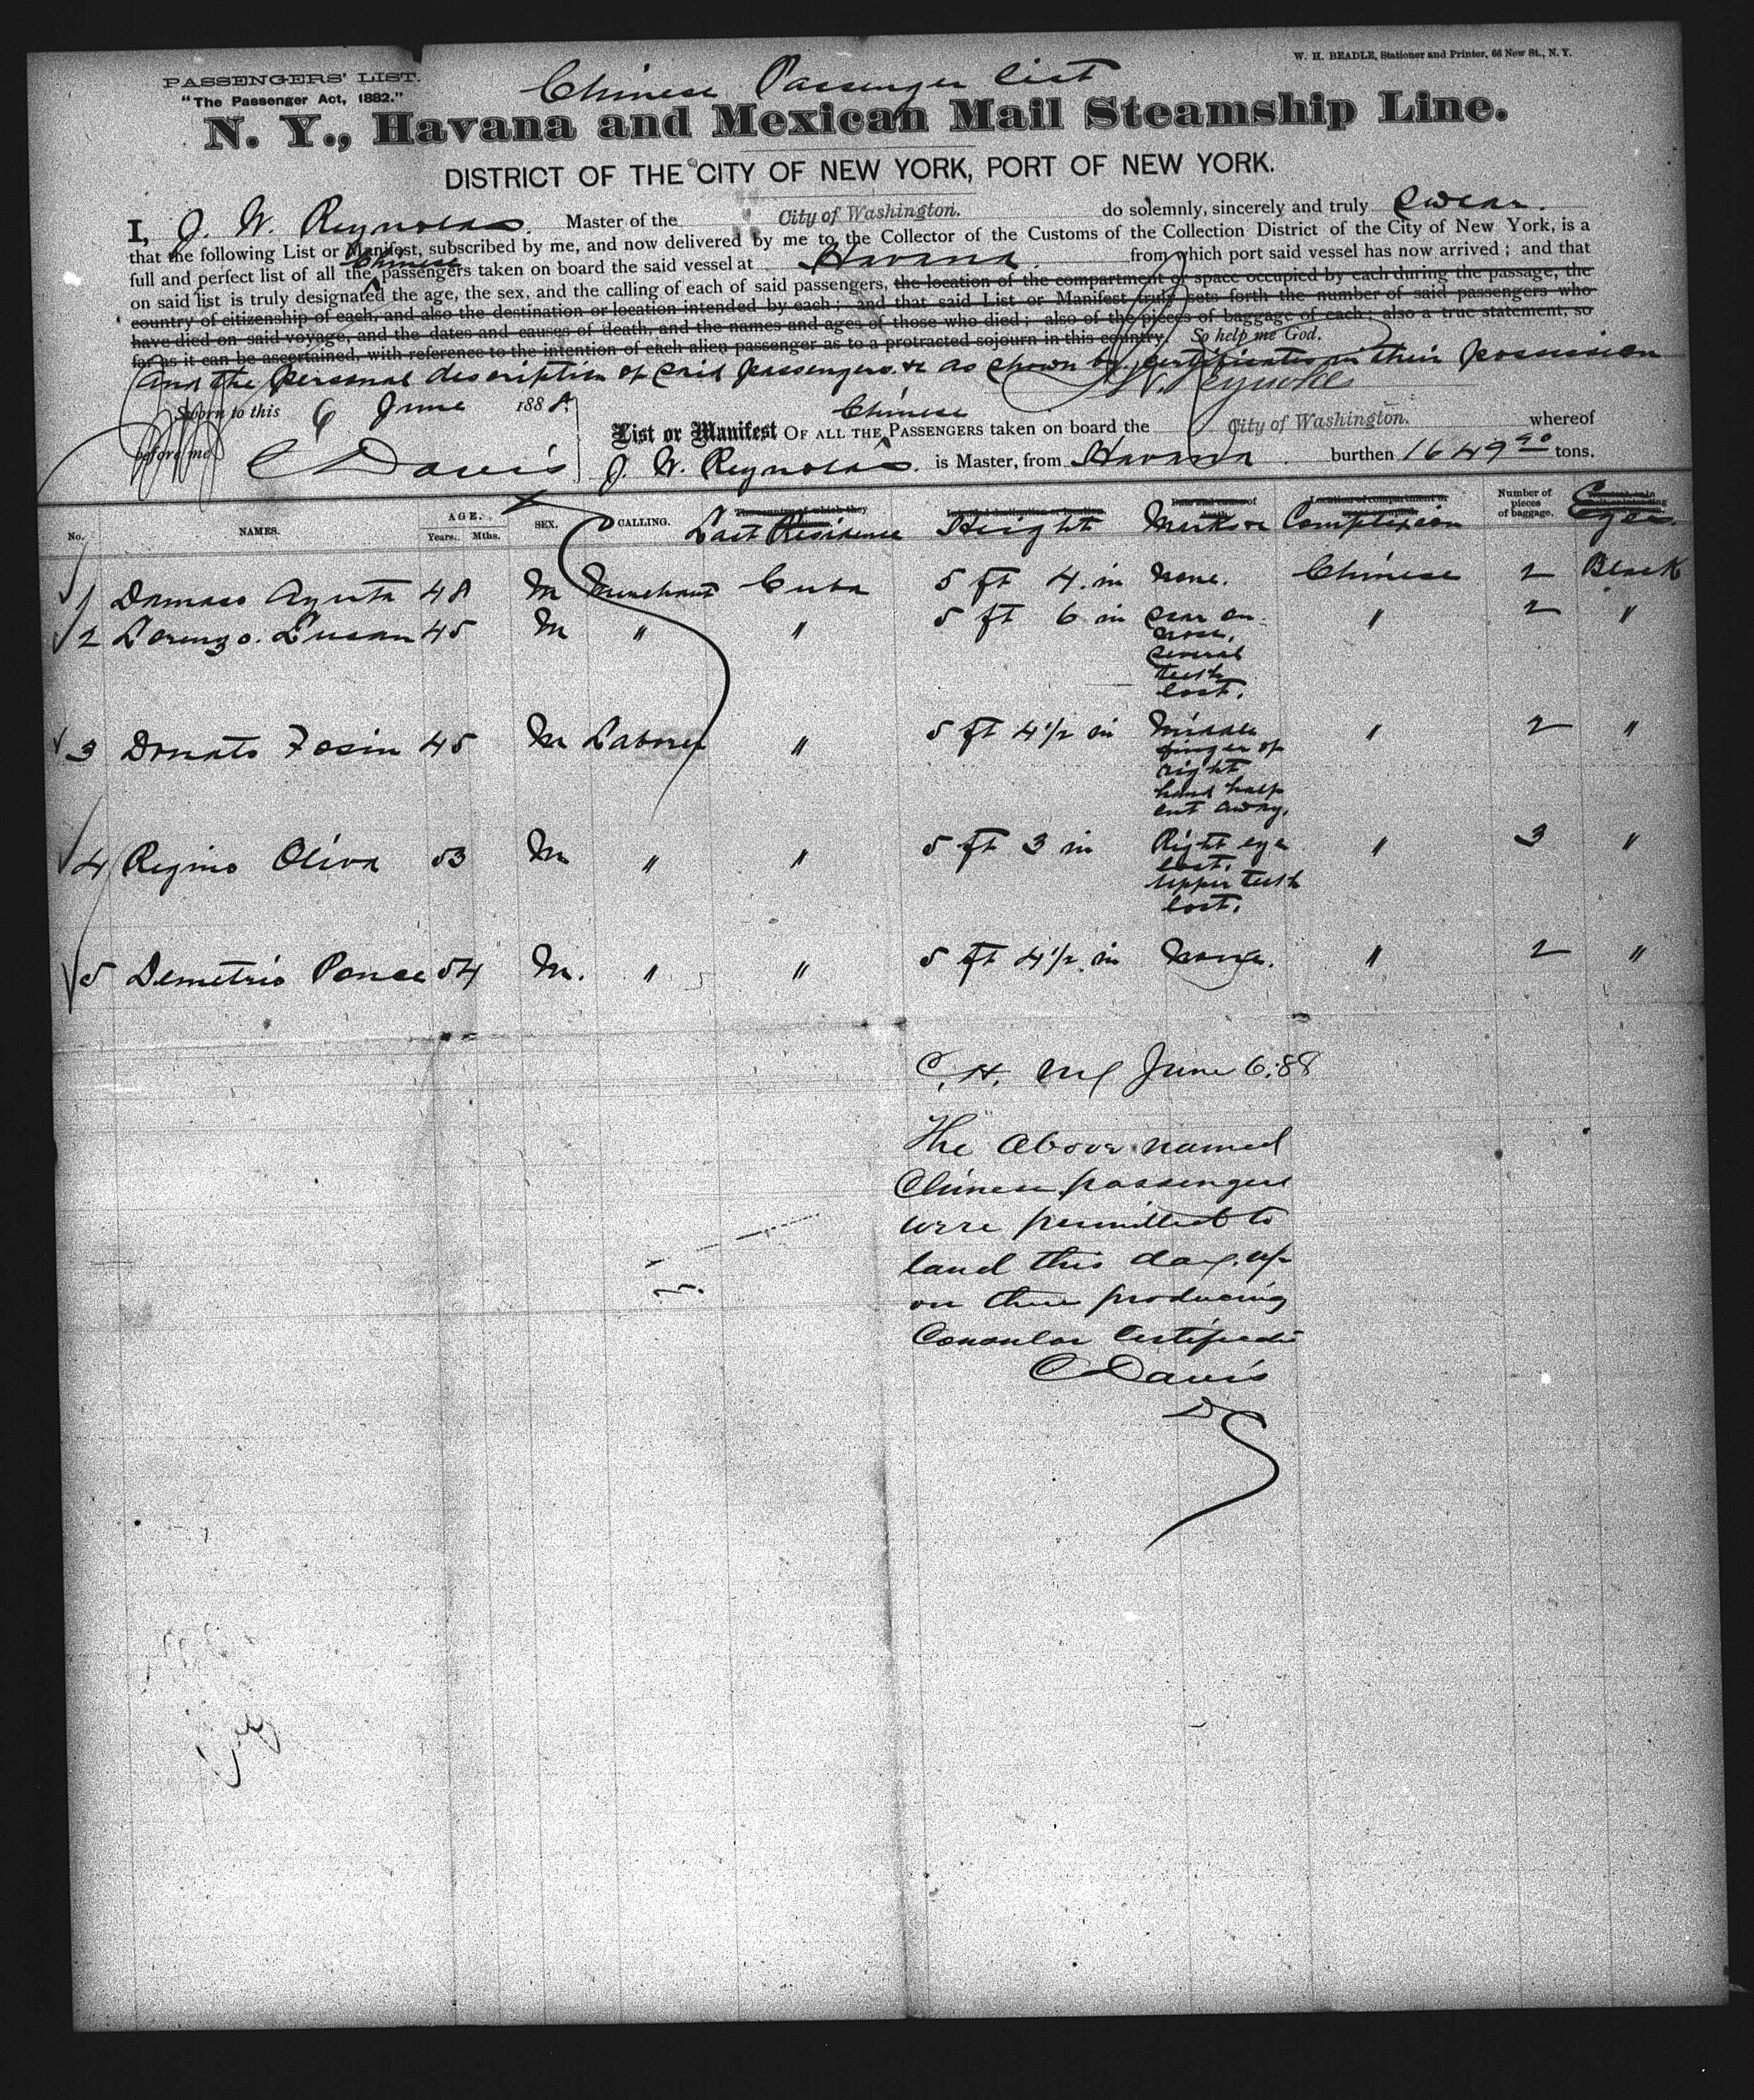 PASSENGERS' LIST.
"The Passenger Act, 1882."
W. H. BEADLE, Stationer and Printer, 66 New St., N. Y.
Chinese Passenger List
N. Y., Havana and Mexican Mail Steamship Line.
DISTRICT OF THE CITY OF NEW YORK, PORT OF NEW YORK.
I, J. W. Reynolds. Master of the City of Washington. do solemnly, sincerely and truly Swear.
that the following List or Manifest, subscribed by me, and now delivered by me to the Collector of the Customs of the Collection District of the City of New York, is a
full and perfect list of all the Chinese passengers taken on board the said vessel at Havana from which port said vessel has now arrived; and that
on said list is truly designated the age, the sex, and the calling of each of said passengers, the location of the compartment or space occupied by each during the passage, the
country of citizenship of each, and also the destination or location intended by each; and that said List or Manifest truly sets forth the number of said passengers who
have died on said voyage, and the dates and causes of death, and the names and ages of those who died; also of the pieces of baggage of each; also a true statement, so
far as it can be ascertained, with reference to the intention of each alien passenger as to a protracted sojourn in this country. So help me God.
and the personal description of said passengers &c as shown by certificates in their possession
J. W. Reynolds
Sworn to this 6 June 1888.
before me C Davis
List or Manifest OF ALL THE Chinese PASSENGERS taken on board the City of Washington. whereof
J. W. Reynolds. is Master, from Havana burthen 1649 90 tons.
No. NAMES. AGE. Years. Mths. SEX. CALLING. Last Residence Height Marks or Complexion Number of pieces of baggage. Eyes.
1 Damaso Ayusta 48 M Merchant Cuba 5 ft 4 in None. Chinese 2 Black
2 Lorenzo. Lusan 45 M " " 5 ft 6 in scar on " 2 "
nose,
several
teeth
lost.
3 Donato Fosin 45 M Laborer " 5 ft 4½ in Middle " 2 "
finger of
right
hand half
cut away.
4 Regino Oliva 53 M " " 5 ft 3 in Right eye " 3 "
lost.
upper teeth
lost.
5 Demetrio Ponce 54 M. " " 5 ft 4½ in None. " 2 "
C. H. NY June 6.88
The above named
Chinese passengers
were permitted to
land this day. up
on their producing
Consular Certificate
C Davis